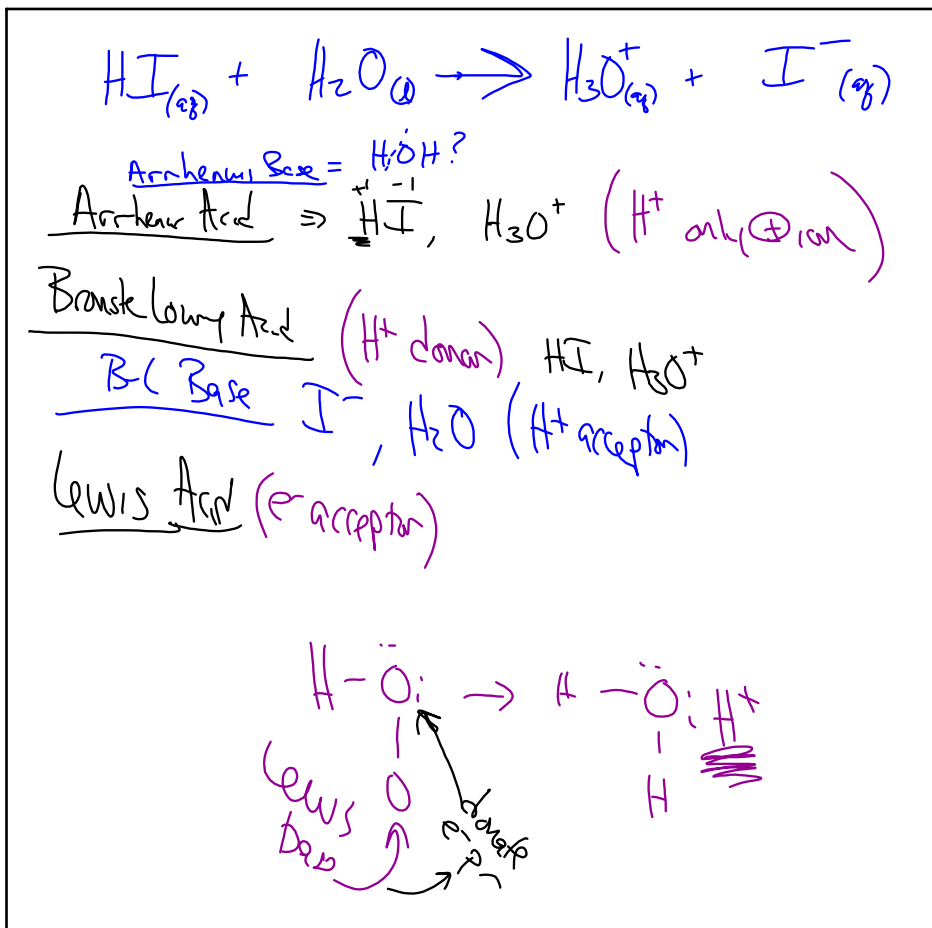 HI(aq) + H2O(l) → H3O+(aq) + I−(aq)
Arrhenius Base = H:ÖH?
Arrhenus Acid ⇒ +1 −1 HI, H3O+ (H+ only ⊕ ion)
Bronste Lowry Acid (H+ donor) HI, H3O+
B-L Base I−, H2O (H+ acceptor)
Lewis Acid (e− acceptor)
H–Ö: → H–Ö: H+
O H
Lewis
Base
donate
e−